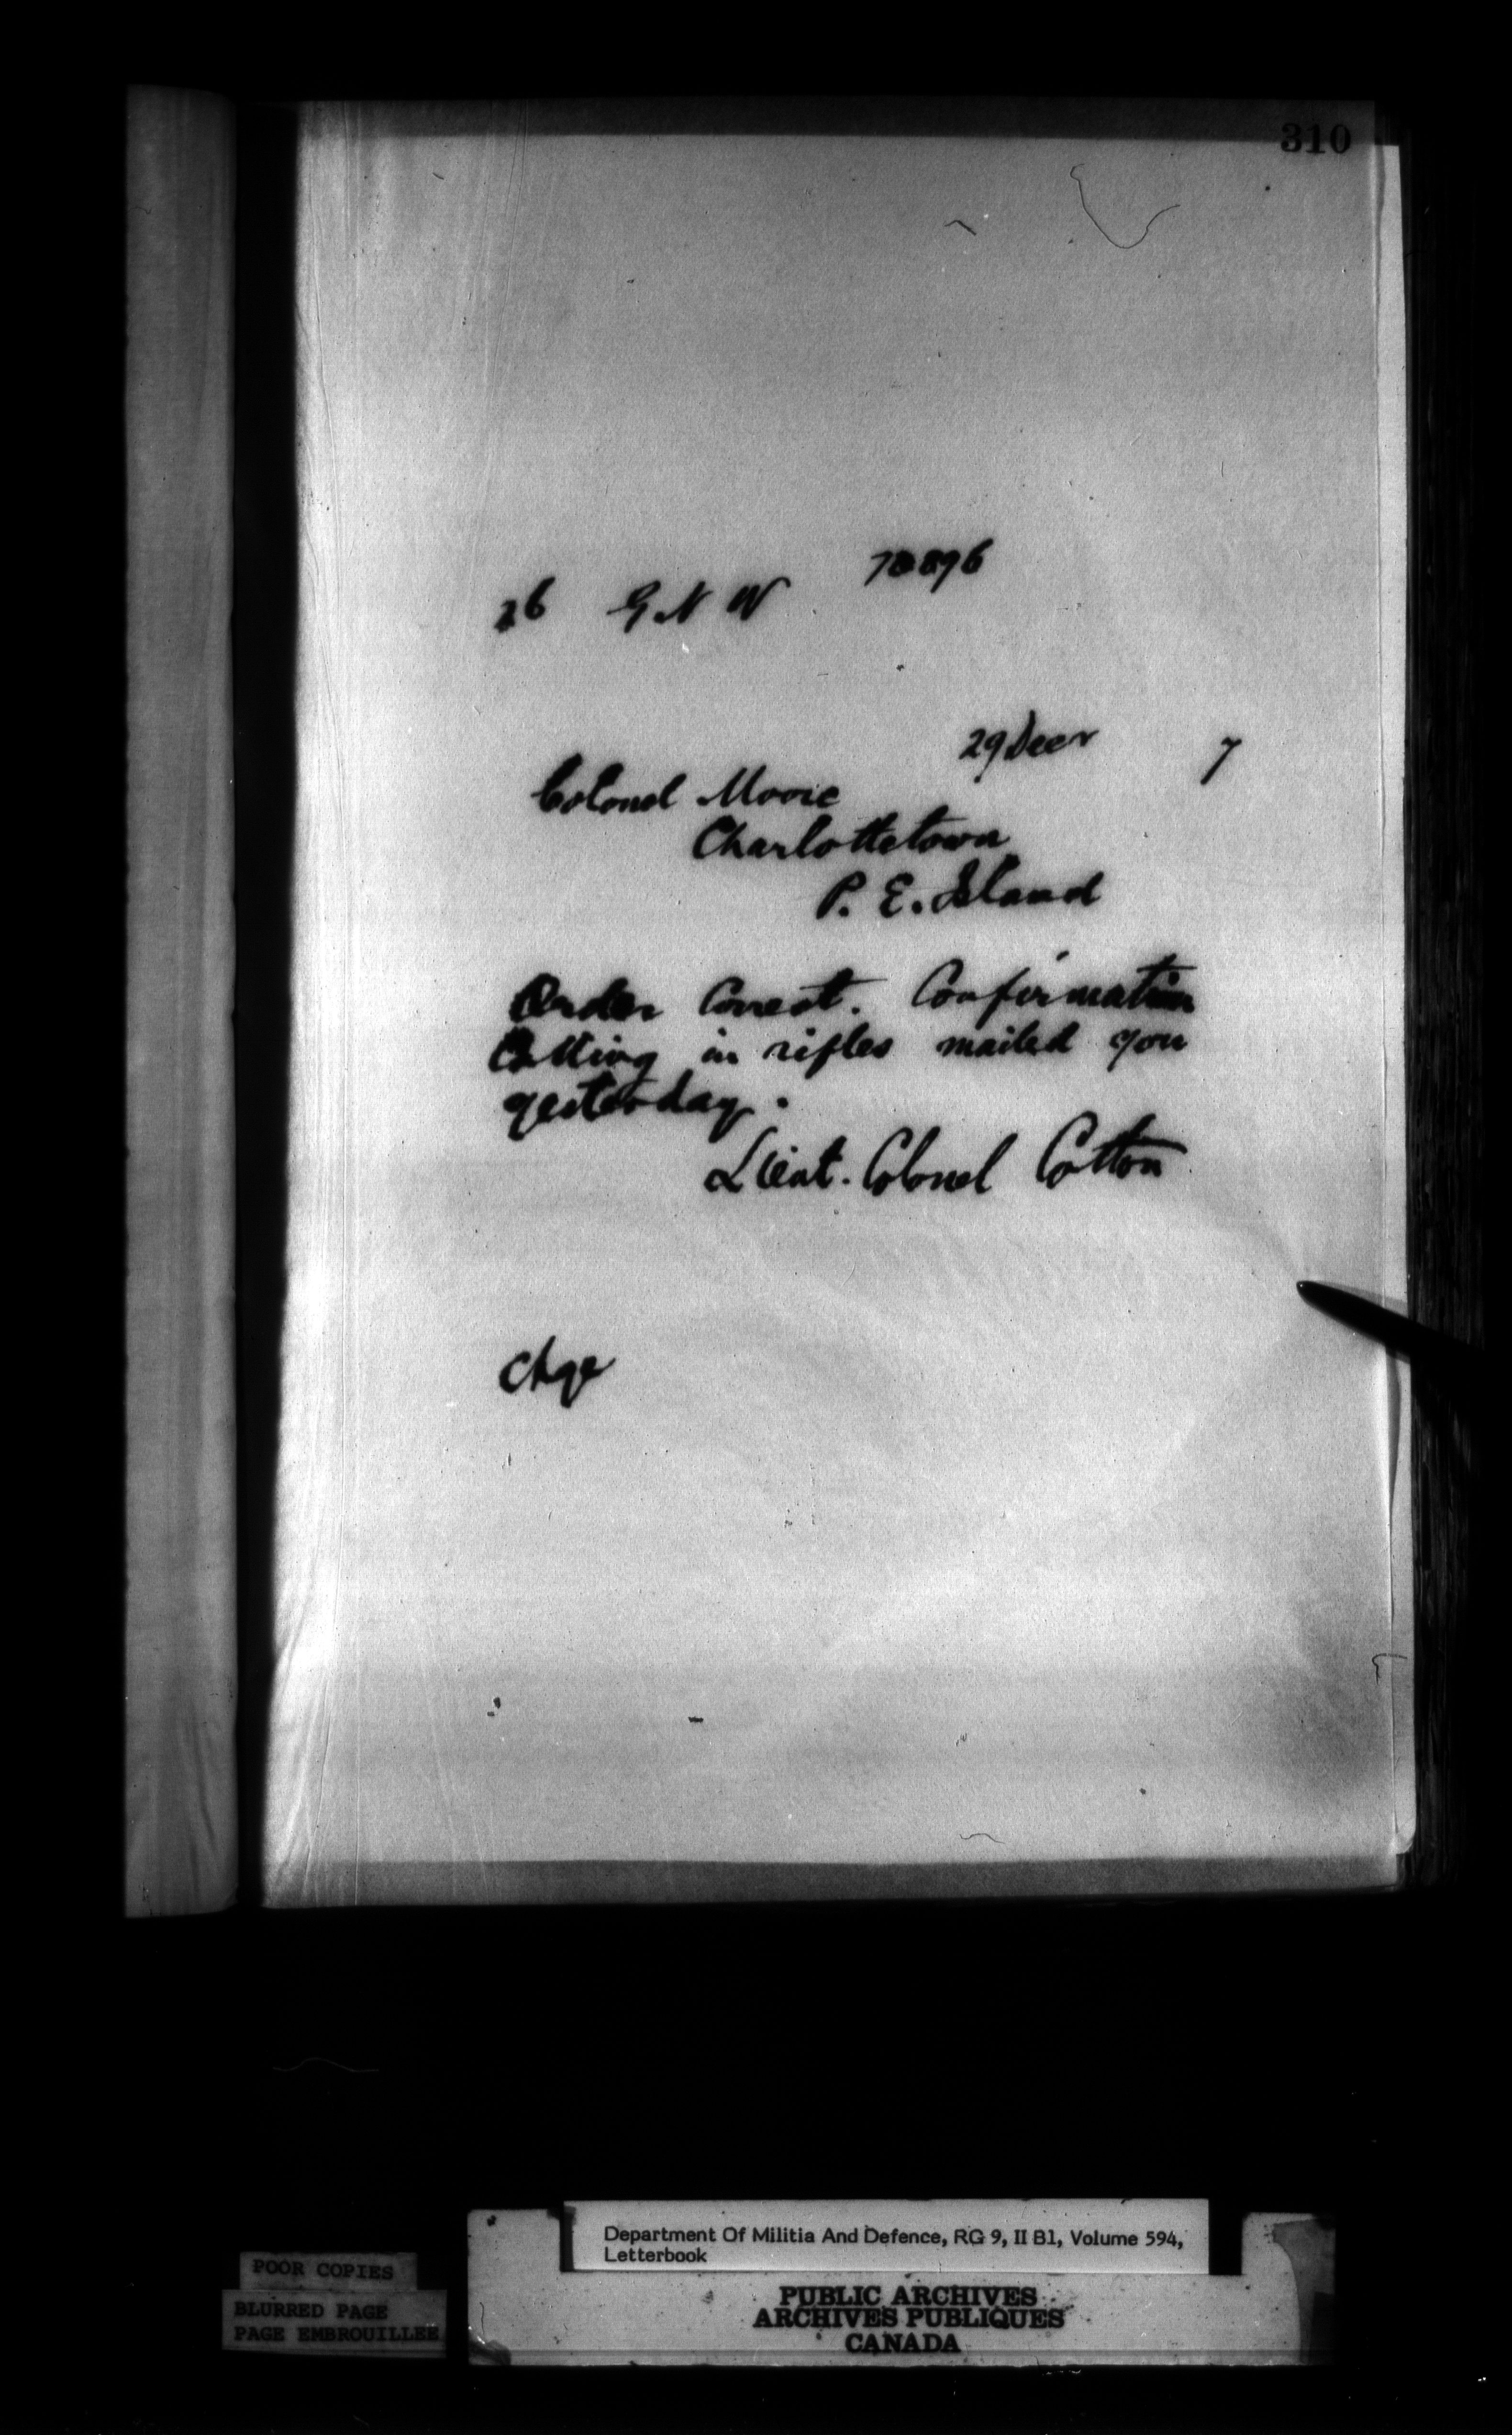 310
70896
26 G.N W
29 Decr 7
Colonel Moore
Charlottetown
P. E. Island
Order Correct. Confirmation
Calling in rifles mailed you
yesterday.
Lieut. Colonel Cotton
Chge
Department Of Militia And Defence, RG 9, II B1, Volume 594,
Letterbook
POOR COPIES
BLURRED PAGE
PAGE EMBROUILLEE
PUBLIC ARCHIVES
ARCHIVES PUBLIQUES
CANADA